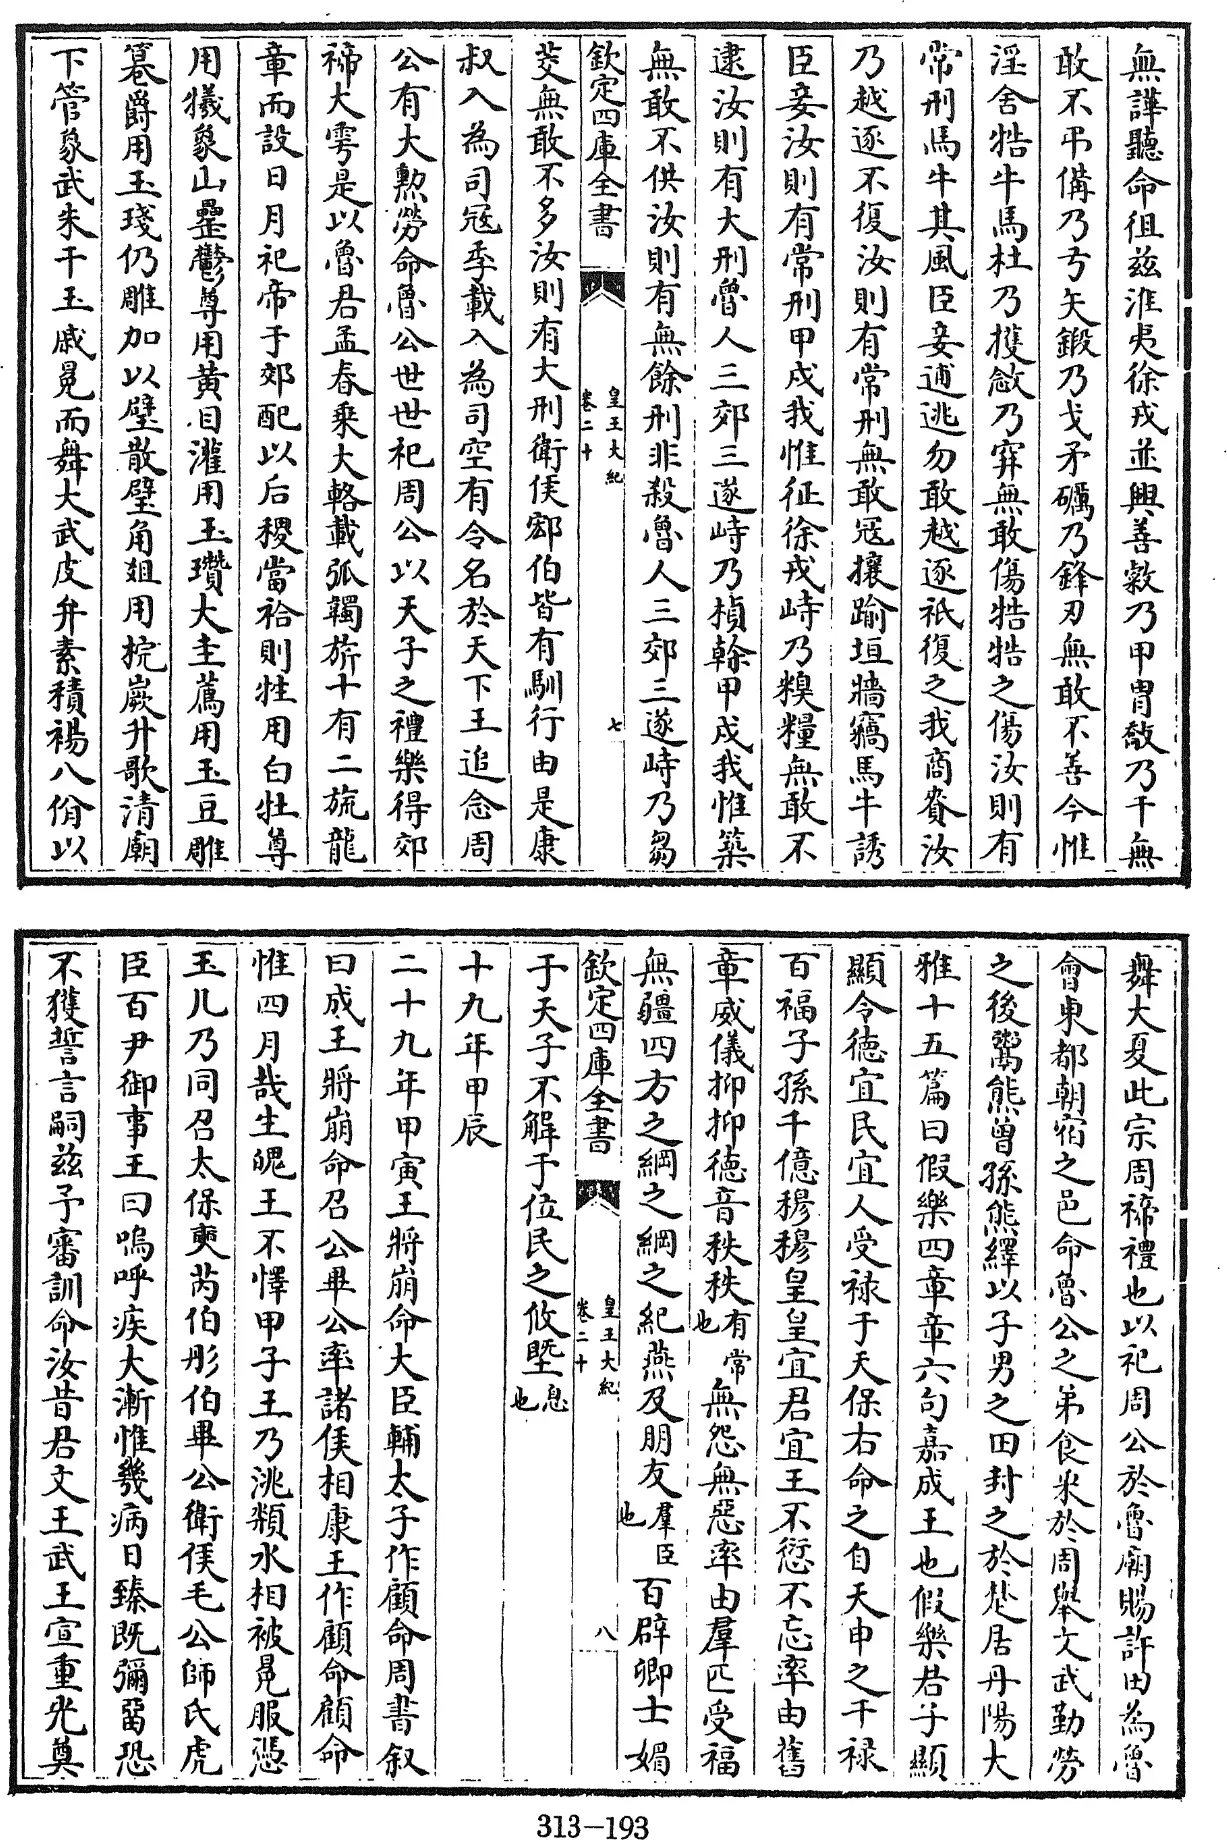 無譁聽命徂兹淮夷徐戎並興善敹乃甲胄敿乃干無
敢不弔備乃弓矢鍛乃戈矛礪乃鋒刃無敢不善今惟
淫舍牿牛馬杜乃擭敜乃穽無敢傷牿牿之傷汝則有
常刑馬牛其風臣妾逋逃勿敢越逐祇復之我商賚汝
乃越逐不復汝則有常刑無敢寇攘踰垣牆竊馬牛誘
臣妾汝則有常刑甲戌我惟征徐戎峙乃糗糧無敢不
逮汝則有大刑魯人三郊三遂峙乃楨榦甲戌我惟築
無敢不供汝則有無餘刑非殺魯人三郊三遂峙乃芻
欽定四庫全書
皇王大紀
卷二十
七
茭無敢不多汝則有大刑衛侯鄒伯皆有馴行由是康
叔入為司寇季載入為司空有令名於天下王追念周
公有大勲勞命魯公世世祀周公以天子之禮樂得郊
禘大雩是以魯君孟春乘大輅載弧韣旂十有二旒龍
章而設日月祀帝于郊配以后稷當祫則牲用白牡尊
用犧象山罍鬱尊用黄目灌用玉瓚大圭薦用玉豆雕
篹爵用玉琖仍雕加以璧散璧角俎用梡嶡升歌清廟
下管象武朱干玉戚冕而舞大武皮弁素積裼八佾以
舞大夏此宗周禘禮也以祀周公於魯廟賜許田為魯
會東都朝宿之邑命魯公之弟食采於周舉文武勤勞
之後鬻熊曾孫熊繹以子男之田封之於楚居丹陽大
雅十五篇曰假樂四章章六句嘉成王也假樂君子顯
顯令徳宜民宜人受禄于天保右命之自天申之干禄
百福子孫千億穆穆皇皇宜君宜王不愆不忘率由舊
章威儀抑抑徳音秩秩有常也無怨無惡率由羣匹受福
無疆四方之綱之綱之紀燕及朋友羣臣也百辟卿士媚
欽定四庫全書
皇王大紀
卷二十
八
于天子不解于位民之攸塈息也
十九年甲辰
二十九年甲寅王將崩命大臣輔太子作顧命周書叙
曰成王將崩命召公畢公率諸侯相康王作顧命顧命
惟四月哉生魄王不懌甲子王乃洮頮水相被冕服憑
玉几乃同召太保奭芮伯彤伯畢公衛侯毛公師氏虎
臣百尹御事王曰嗚呼疾大漸惟幾病日臻既彌留恐
不獲誓言嗣兹予審訓命汝昔君文王武王宣重光奠
313-193